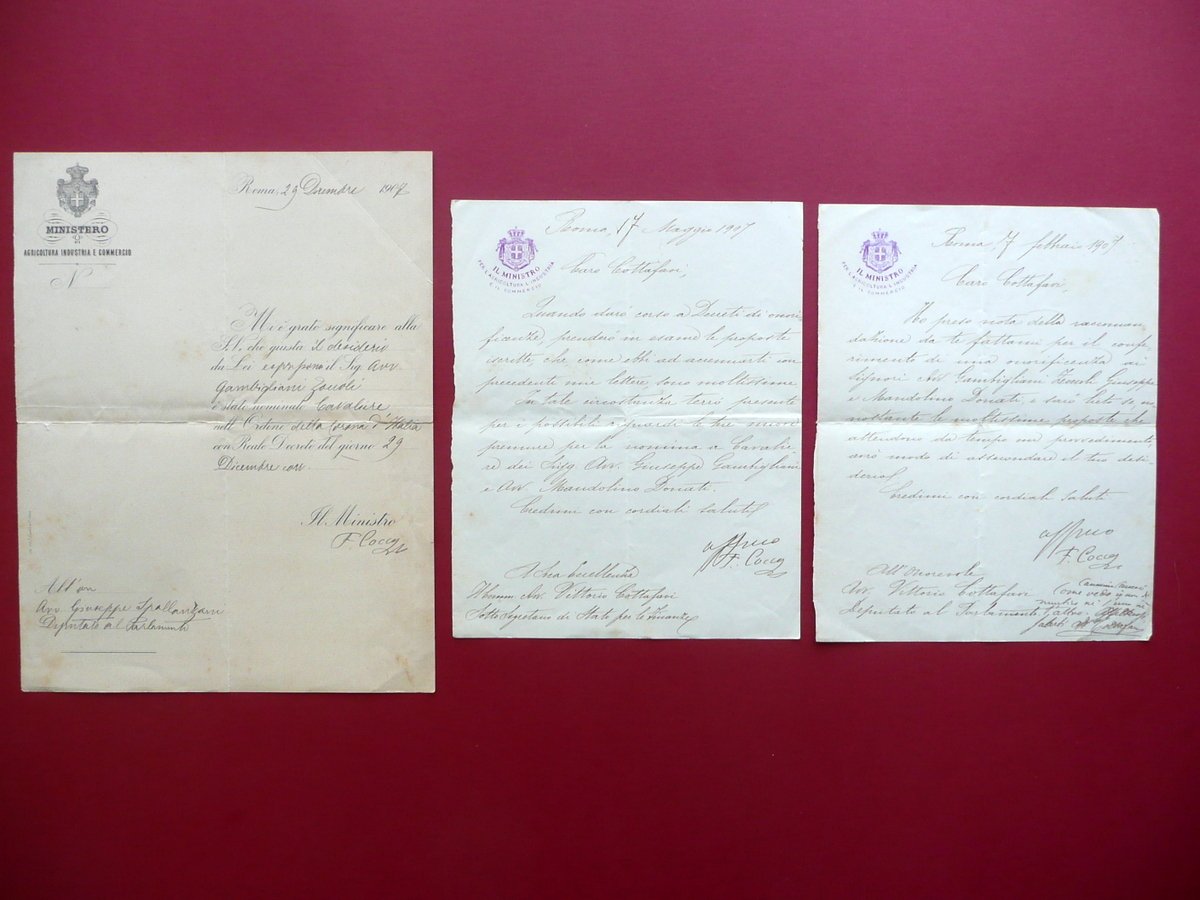 MINISTERO
DI
AGRICOLTURA INDUSTRIA E COMMERCIO
N
Roma, 29 Dicembre 1907
Mi è grato significare alla
S.V. che giusta il desiderio
da Lei espresso il Sig. Avv.
Gambigliani Zoccoli
è stato nominato Cavaliere
nell'Ordine della Corona d'Italia
con Reale Decreto del giorno 29
Dicembre
Il Ministro
F. Cocco
All'on
Avv Giuseppe Spallanzani
Deputato al Parlamento
IL MINISTRO
PER L'AGRICOLTURA L'INDUSTRIA
E IL COMMERCIO
Roma, 17 Maggio 1907
Caro Cottafavi,
Quando darò corso a Decreti di onori-
ficenze, prenderò in esame le proposte
iscritte, che come ebbi ad accennarti con
precedente mia lettera, sono moltissime.
In tale circostanza terrò presente
per i possibili riguardi le tue
premure per la nomina a Cavalie
re dei Sigg. Avv. Giuseppe Gambigliani
e Avv. Mandolino Donati.
Credimi con cordiali saluti
affmo
F. Cocco
A Sua Eccellenza
Avv. Vittorio Cottafavi
Sotto Segretario di Stato per le Finanze
IL MINISTRO
PER L'AGRICOLTURA L'INDUSTRIA
E IL COMMERCIO
Roma, 7 febbraio 1907
Caro Cottafavi,
Ho preso nota della raccoman-
dazione da te fattami per il confe-
rimento di una onorificenza ai
signori Avv. Gambigliani Zoccoli Giuseppe
e Mandolino Donati, e sarò lieto se no-
nostante le moltissime proposte che
attendono da tempo un provvedimento
avrò modo di assecondare il tuo desi-
derio.
Credimi con cordiali saluti
affmo
F. Cocco
All'Onorevole
Avv. Vittorio Cottafavi
Deputato al Parlamento
Come vedi